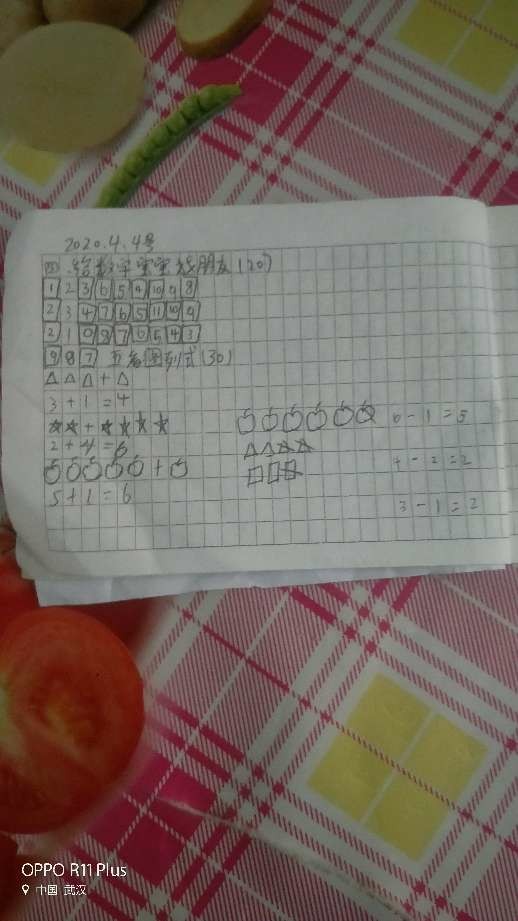 2020.4.4号
四.给数字宝宝找朋友(20)
1 2 3 6 5 9 10 9 8
2 3 4 7 6 5 11 10 9
2 1 0 8 7 6 5 4 3
9 8 7 五看图列式(30)
3+1=4
2+4=6
5+1=6
6-1=5
4-2=2
3-1=2
OPPO R11 Plus
中国 武汉